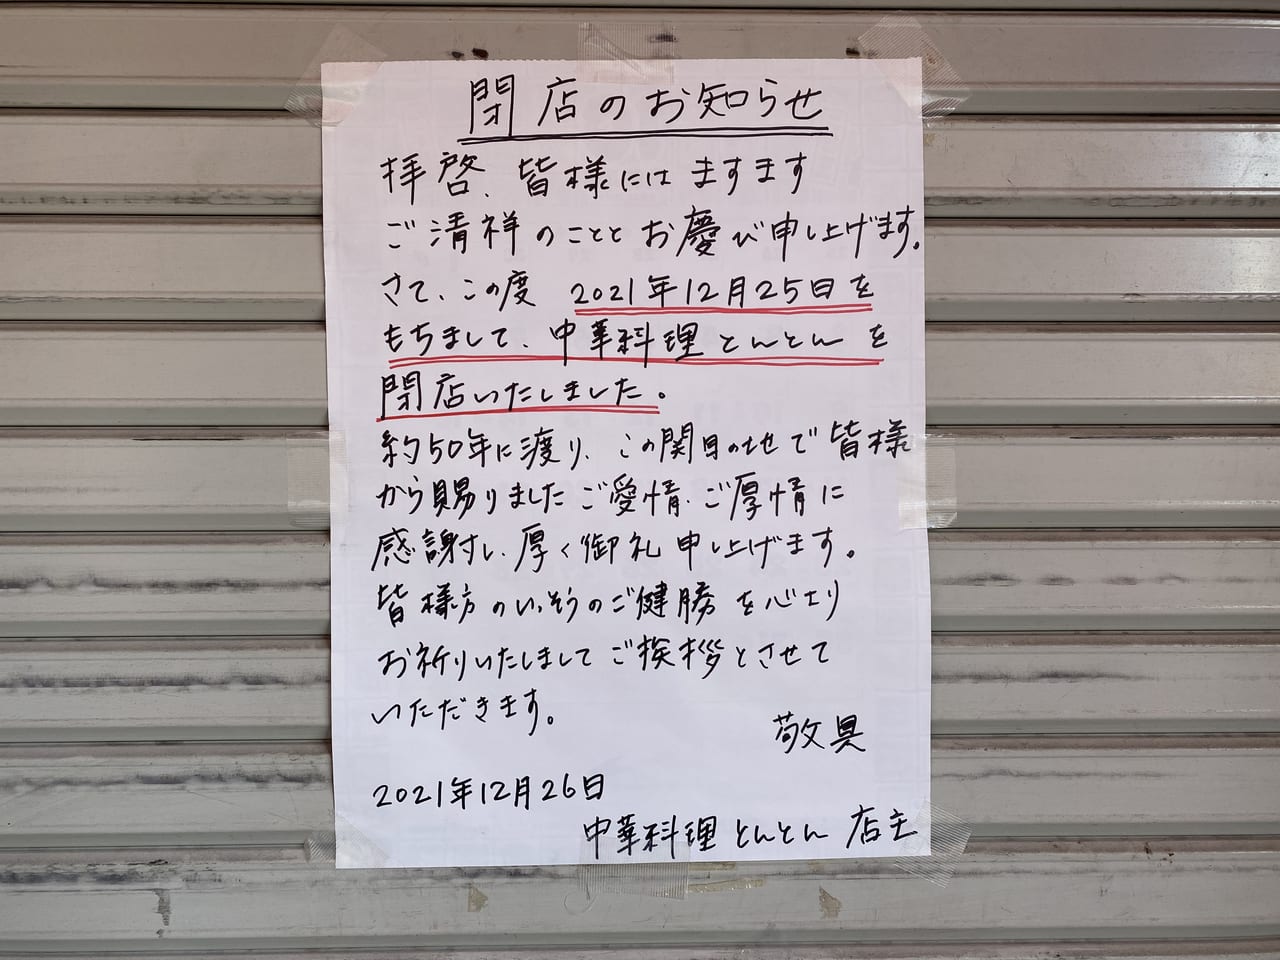 閉店のお知らせ
拝啓、皆様にはますます
ご清祥のこととお慶び申し上げます。
さて、この度 2021年12月25日を
もちまして、中華料理とんとんを
閉店いたしました。
約50年に渡り、この関目の地で皆様
から賜りましたご愛情、ご厚情に
感謝し、厚く御礼申し上げます。
皆様方のいっそうのご健勝を心より
お祈りいたしましてご挨拶とさせて
いただきます。
敬具
2021年12月26日
中華料理とんとん 店主